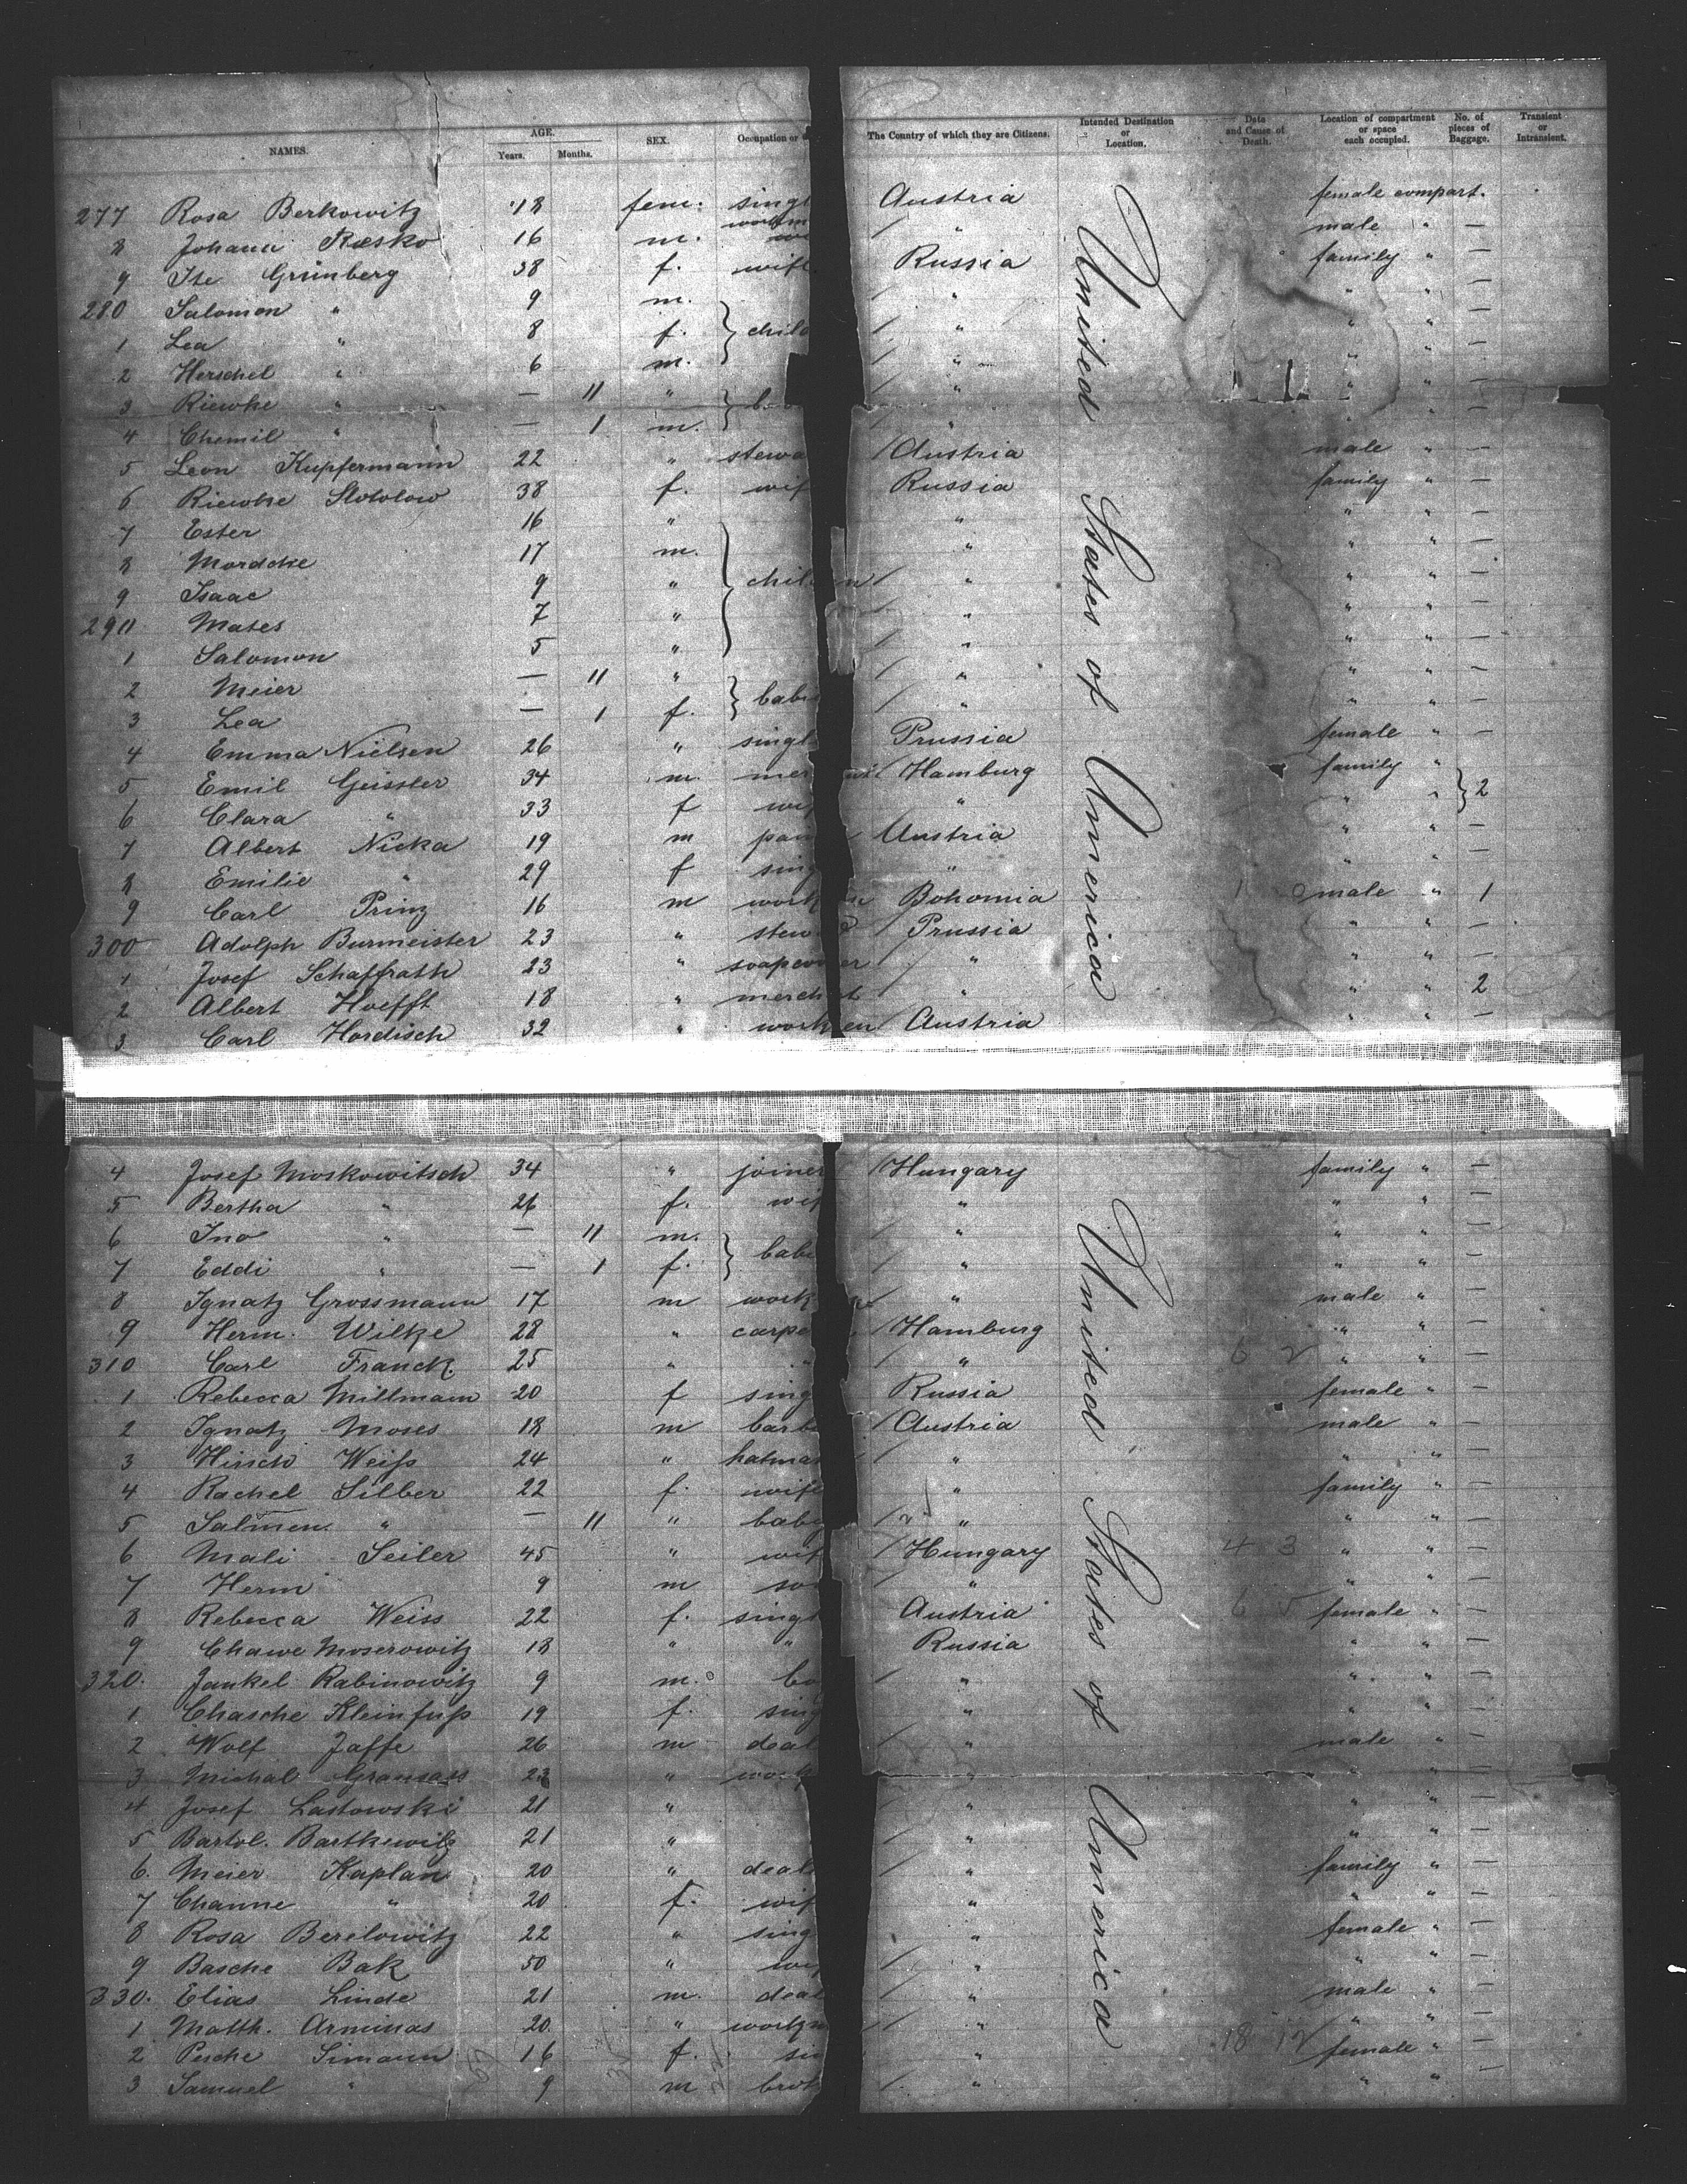 NAMES. AGE. Years. Months. SEX. Occupation or The Country of which they are Citizens. Intended Destination or Location. Date and Cause of Death. Location of compartment or space each occupied. No. of pieces of Baggage. Transient or Intransient.
277 Rosa Berkowitz 18 fem. singl Austria female compart.
8 Johann Resko 16 m. " male " —
9 Ite Grünberg 38 f. wife Russia family " —
280 Salomon " 9 m. " " " —
1 Lea " 8 f. child " " " —
2 Herschel " 6 m. " " " —
3 Riewke " — 11 " " " " —
4 Chemil " — 1 m. " " " —
5 Leon Kupfermann 22 " stewa Austria male " —
6 Riewke Slotolow 38 f. wif Russia family " —
7 Ester 16 " " " " —
8 Mordche 17 m. " " " —
9 Isaac 9 " chil en " " " —
290 Mates 7 " " " " —
1 Salomon 5 " " " " —
2 Meier — 11 " " " " —
3 Lea — 1 f. babi " " " —
4 Emma Nielsen 26 " singl Prussia female " —
5 Emil Geissler 34 m. mer Hamburg family "
6 Clara " 33 f wif " " " 2
7 Albert Nicka 19 m Austria " " —
8 Emilie " 29 f sing " " —
9 Carl Prinz 16 m work Bohomia male " 1
300 Adolph Burmeister 23 " stew d Prussia " " —
1 Josef Schaffrath 23 " soap er " " " —
2 Albert Hoefft 18 " merch t " " " 2
3 Carl Hordisch 32 " work en Austria " " —
4 Josef Moskowitsch 34 " joiner Hungary family " —
5 Bertha " 26 f. wif " " " —
6 Ino " — 11 m. " " " —
7 Eddi " — 1 f. babi " " " —
8 Ignatz Grossmann 17 m work " male " —
9 Herm. Wilke 28 " carpe Hamburg " " —
310 Carl Franck. 25 " " " 6 2 " " —
1 Rebecca Millmann 20 f sing Russia female " —
2 Ignatz Moses 18 m barb Austria male " —
3 Hirsch Weiss 24 " hatma " " " —
4 Rachel Silber 22 f. wife " family " —
5 Salmen " — 11 " baby " " " —
6 Mali Seiler 45 " wif Hungary 4 3 " " —
7 Herm 9 m so " " " —
8 Rebecca Weiss 22 f. singl Austria 6 5 female " —
9 Chawe Moserowitz 18 " " Russia " " —
320. Jankel Rabinowitz 9 m. bo " " " —
1 Chasche Kleinfuss 19 f. sing " " " —
2 Wolf Jaffe 26 m deal " male " —
3 Michal Gransass 23 " work " " " —
4 Josef Lastowski 21 " " " " —
5 Bartol. Bartkewitz 21 " " " " —
6. Meier Kaplan 20 " deal " family " —
7 Channe " 20 f. wif " " " —
8 Rosa Berelowitz 22 " sing " female " —
9 Basche Bak 50 " wif " " " —
330. Elias Linde 21 m. deal " male " —
1 Matth. Arminas 20 " workm " " " —
2 Pesche Simann 16 f. si " 18 12 female " —
3 Samuel " 9 m brot " " " —
United States of America
United States of America